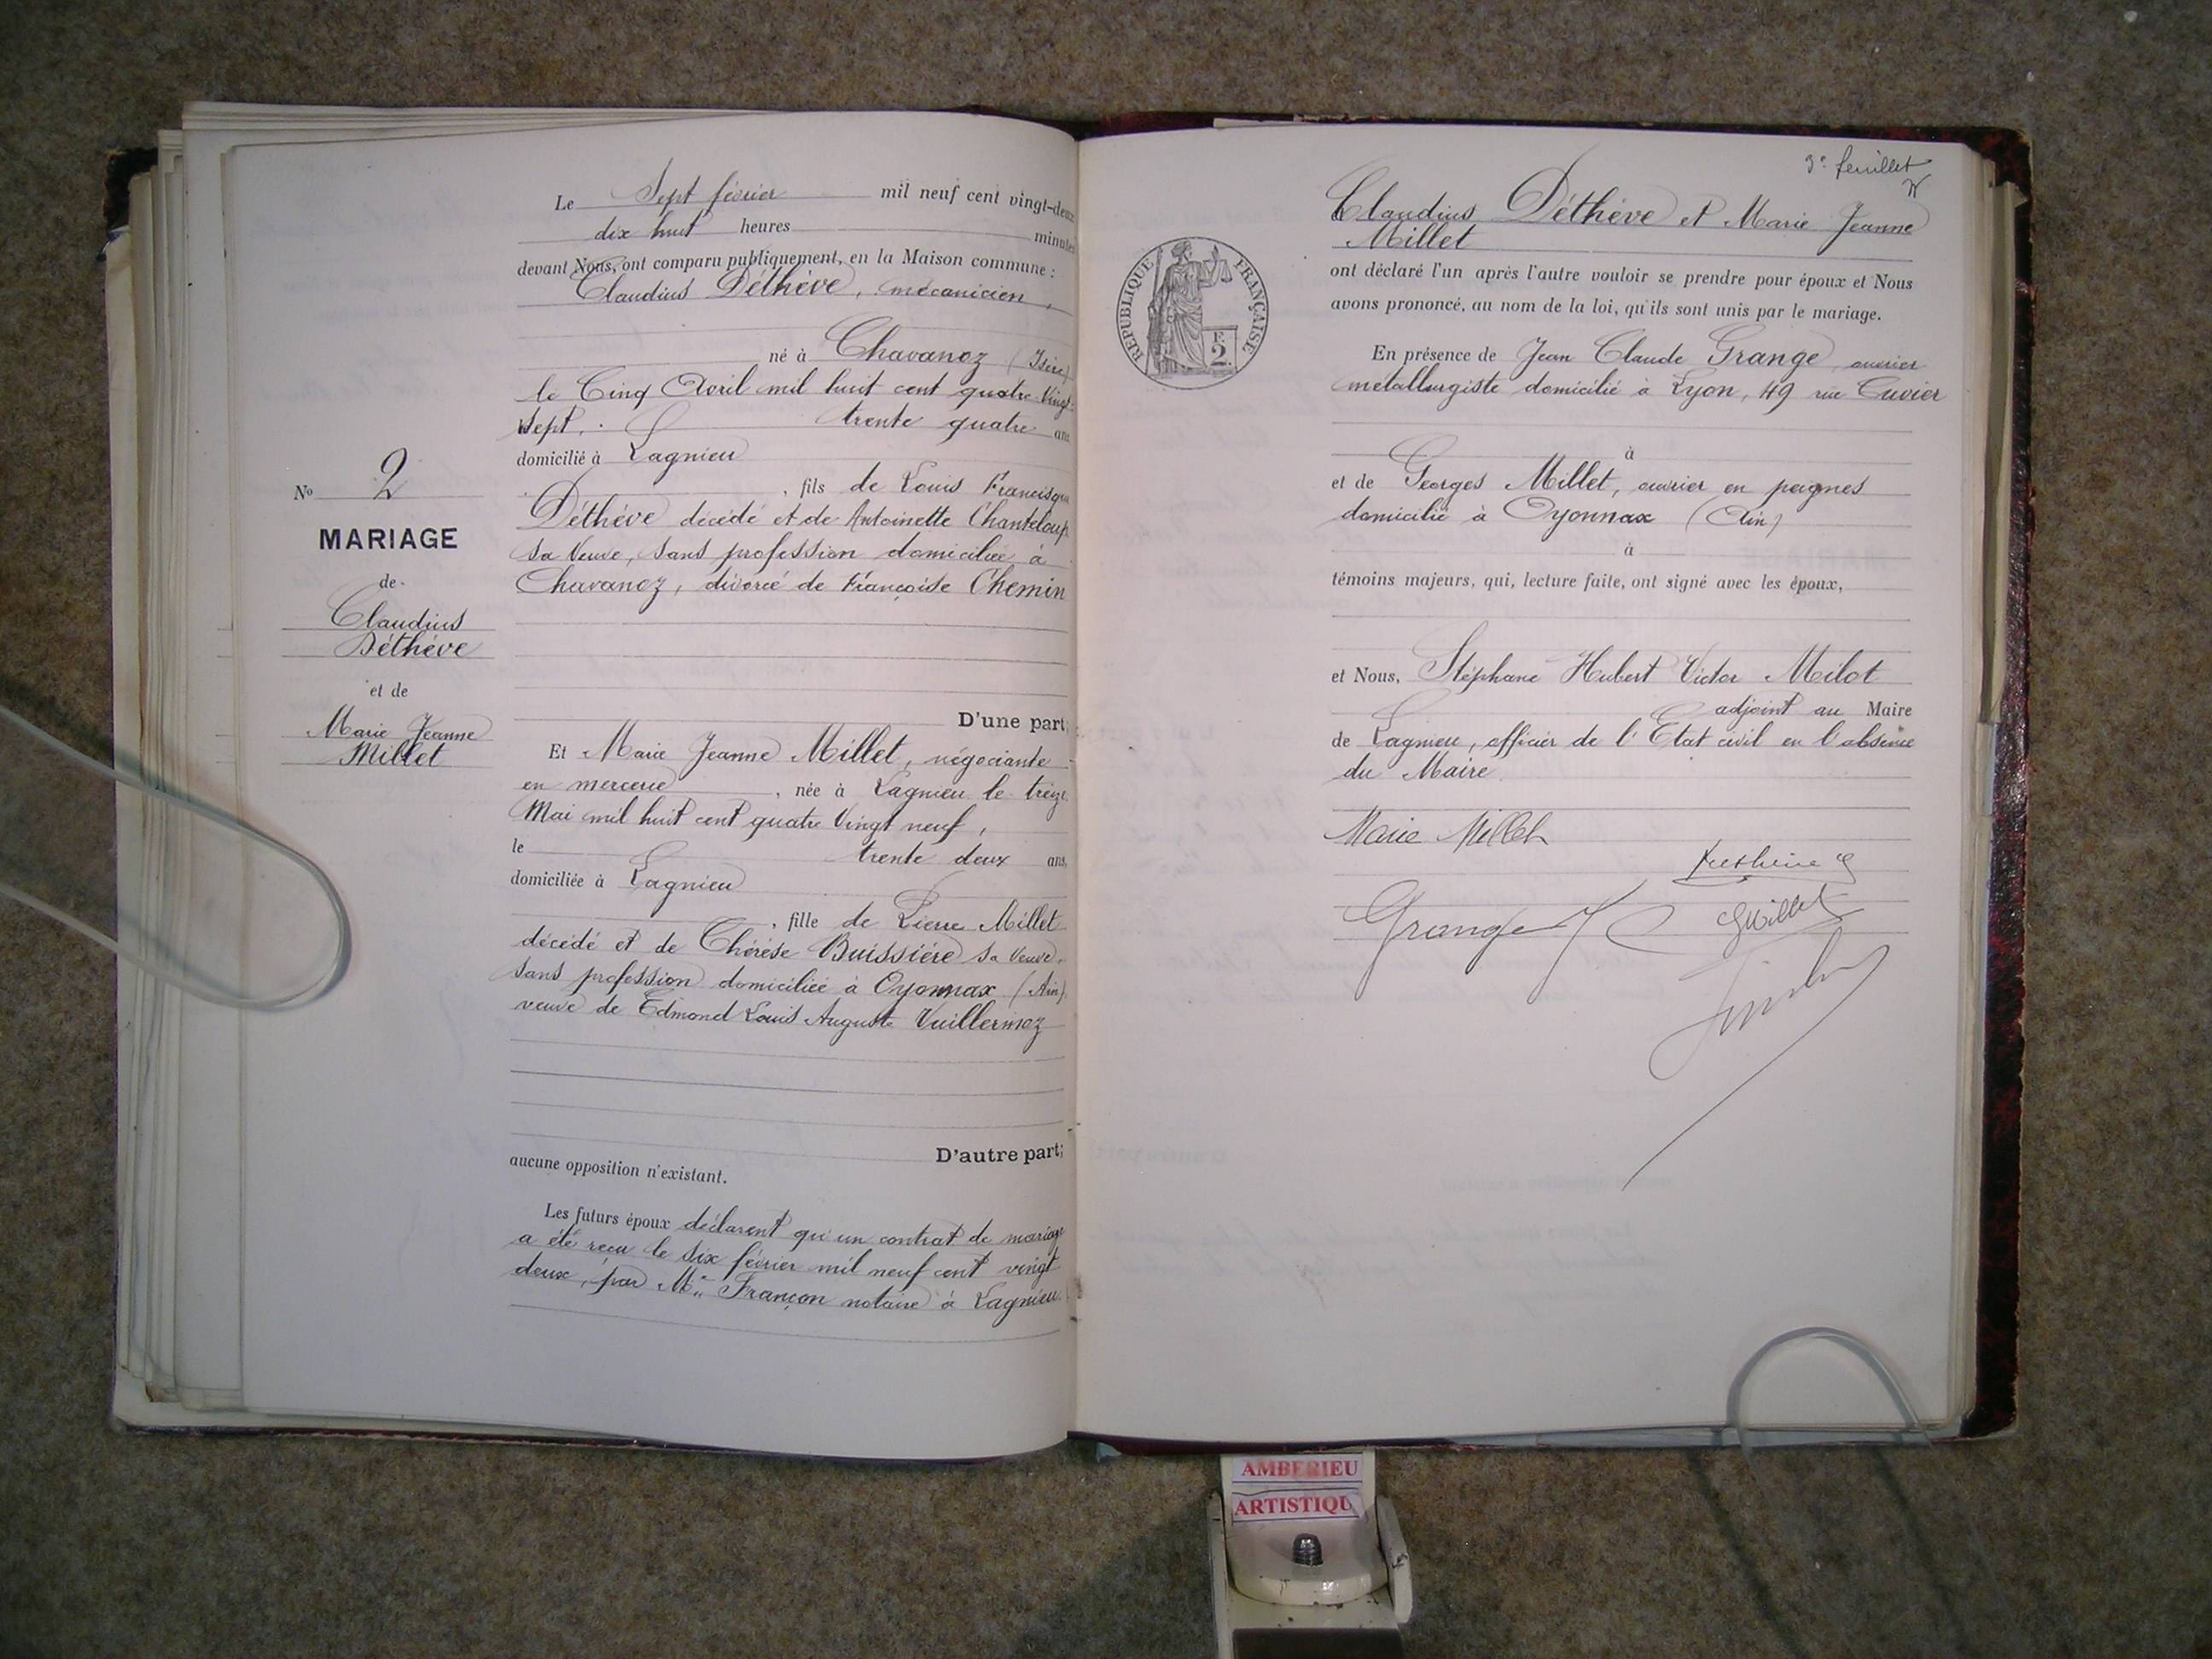 Le Sept février mil neuf cent vingt-deux
dix huit heures minutes
devant Nous, ont comparu publiquement, en la Maison commune :
Claudius Déthève, mécanicien,
né à Chavanoz (Isère)
le Cinq Avril mil huit cent quatre Vingt
Sept, trente quatre ans
domicilié à Lagnieu
, fils de Louis Francisque
Déthève décédé et de Antoinette Chanteloup
sa Veuve, sans profession domiciliée à
Chavanoz, divorcé de Françoise Chemin
D'une part;
No 2
MARIAGE
de
Claudius
Déthève
et de
Marie Jeanne
Millet
Et Marie Jeanne Millet, négociante
en mercerie, née à Lagnieu le treize
Mai mil huit cent quatre Vingt neuf,
le trente deux ans,
domiciliée à Lagnieu
, fille de Pierre Millet
décédé et de Thérèse Buissière sa Veuve,
sans profession domiciliée à Oyonnax (Ain)
veuve de Edmond Louis Auguste Vuillermoz
D'autre part;
aucune opposition n'existant.
Les futurs époux déclarent qu'un contrat de mariage
a été reçu le six février mil neuf cent vingt
deux, par Me Françon notaire à Lagnieu
3e feuillet
Claudius Déthève et Marie Jeanne
Millet
ont déclaré l'un après l'autre vouloir se prendre pour époux et Nous
avons prononcé, au nom de la loi, qu'ils sont unis par le mariage.
RÉPUBLIQUE FRANÇAISE
F.
2
En présence de Jean Claude Grange ouvrier
métallurgiste domicilié à Lyon, 49 rue Cuvier
à
et de Georges Millet, ouvrier en peignes
domicilié à Oyonnax (Ain)
à
témoins majeurs, qui, lecture faite, ont signé avec les époux,
et Nous, Stéphane Hubert Victor Milot
adjoint au Maire
de Lagnieu, officier de l'Etat civil en l'absence
du Maire
Marie Millet
Detheve C
Grange J C
G Millet
AMBERIEU
ARTISTIQU